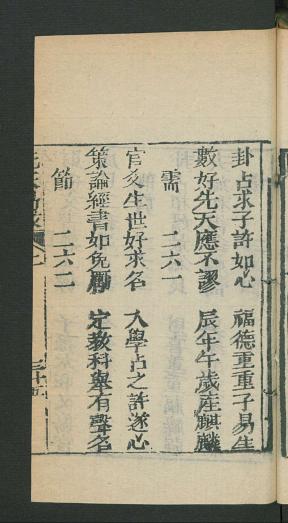 卦占求子許如心　福德重重子易生
數好先天應不謬　辰年午歲産麒麟
需　二六一
官爻生世好求名　入學占之許遂心
策論經書如免  定教科舉有聲名
節　二六二